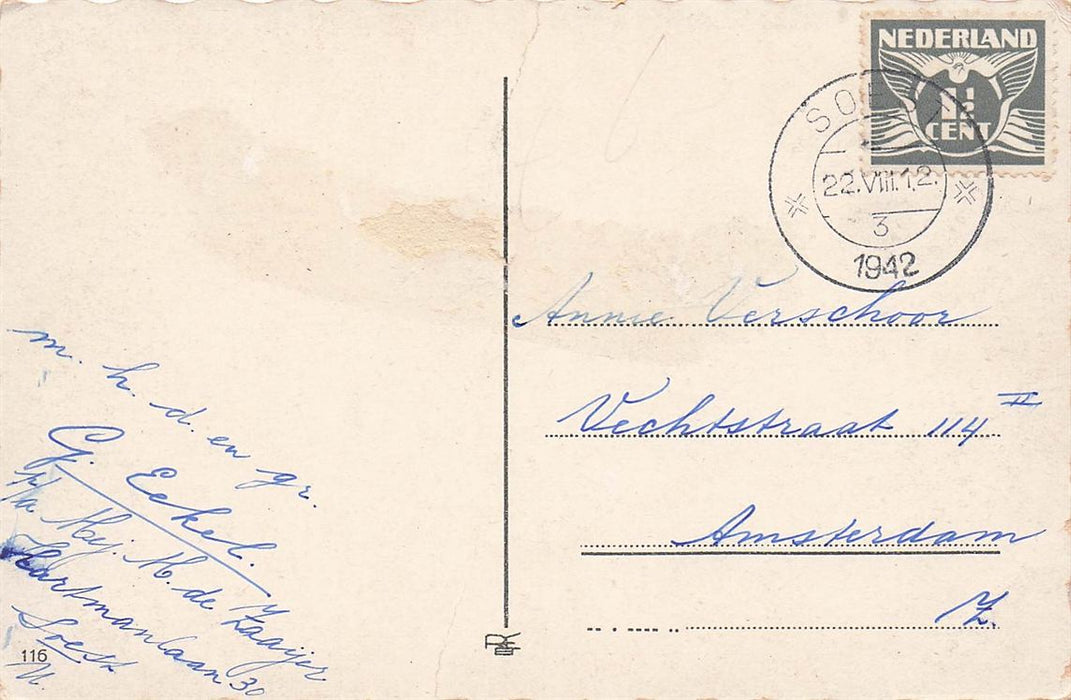 NEDERLAND
1½
CENT
SOEST
22.VIII.12.
3
1942
Annie Verschoor
Vechtstraat 114 II
Amsterdam
Z.
m. h. d. en gr.
G. Eckel.
p/a Mej. M. de Zaaijer
Hartmanlaan 30
Soest
116